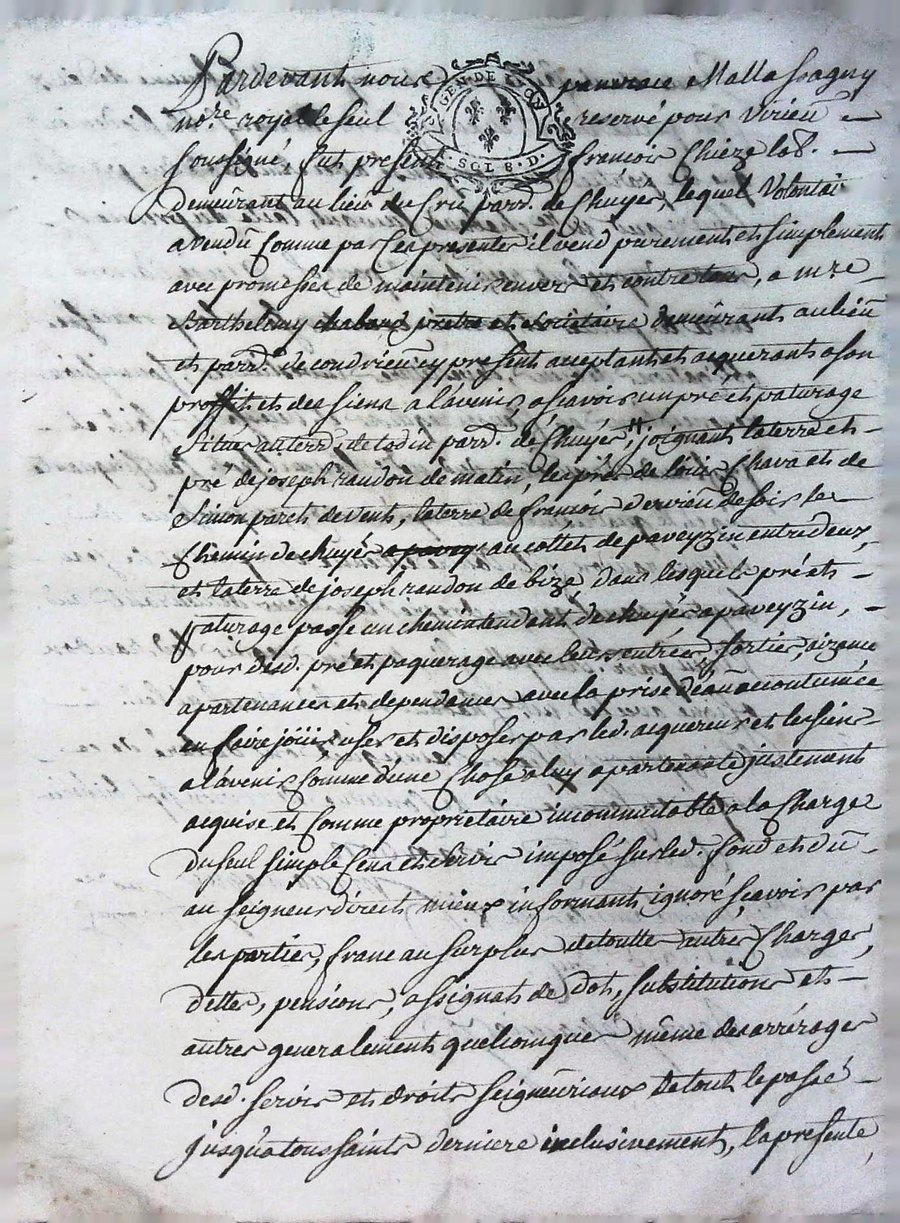 Pardevant nous GEN. DE LYON Mallassagny
no.re royal le seul reservé pour Virieu
soussigné fut present SOL 8. D. francois Chieze lab.
demeurant au lieu de Cric parr. de Chuyer, lequel Volontai
a vendü Comme par Ces presentes il vend purement et simplement
avec promesses de maintenir envers et contre tous, a mre
Barthelemy chabaud pretre et societaire demeurant au lieu
et parr. de condrieu cy present acceptant et acquerant a son
proffit et des siens a l'avenir, a scavoir un pré et paturage
situés au terr. de parr. de Chuyer, joignant la terre et
pré de joseph randon de matin, les prés de loüis Chava et de
Simon paret de vent, la terre de francois dervieu de soir le
Chemin de chuyer au collet de paveyzin entre deux,
et la terre de joseph randon de bize, dans lesquels pré et
paturage passe un chemin tendant de chuyer a paveyzin,
pour desd. pré et paquerage avec leurs entrées, sorties, aizance
apartenances et dependences avec la prise d'eau acoutumée
en faire joüir user et disposer par led. acquereur et les siens
a l'avenir Comme d'une Chose a luy apartenante justement
acquise et Comme propriétaire incommutable a la Charge
du seul simple Cens et servis imposé sur led. fond et dû
au seigneur direct mieux informant, ignoré scavoir par
les parties, franc au surplus de toutte autres Charges,
dettes, pensions, assignats de dot, substitutions et
autres generalement quelconques même des arrérages
desd. servis et droits seigneuriaux de tout le passé
jusqu'a toussaints derniere inclusivement, la presente